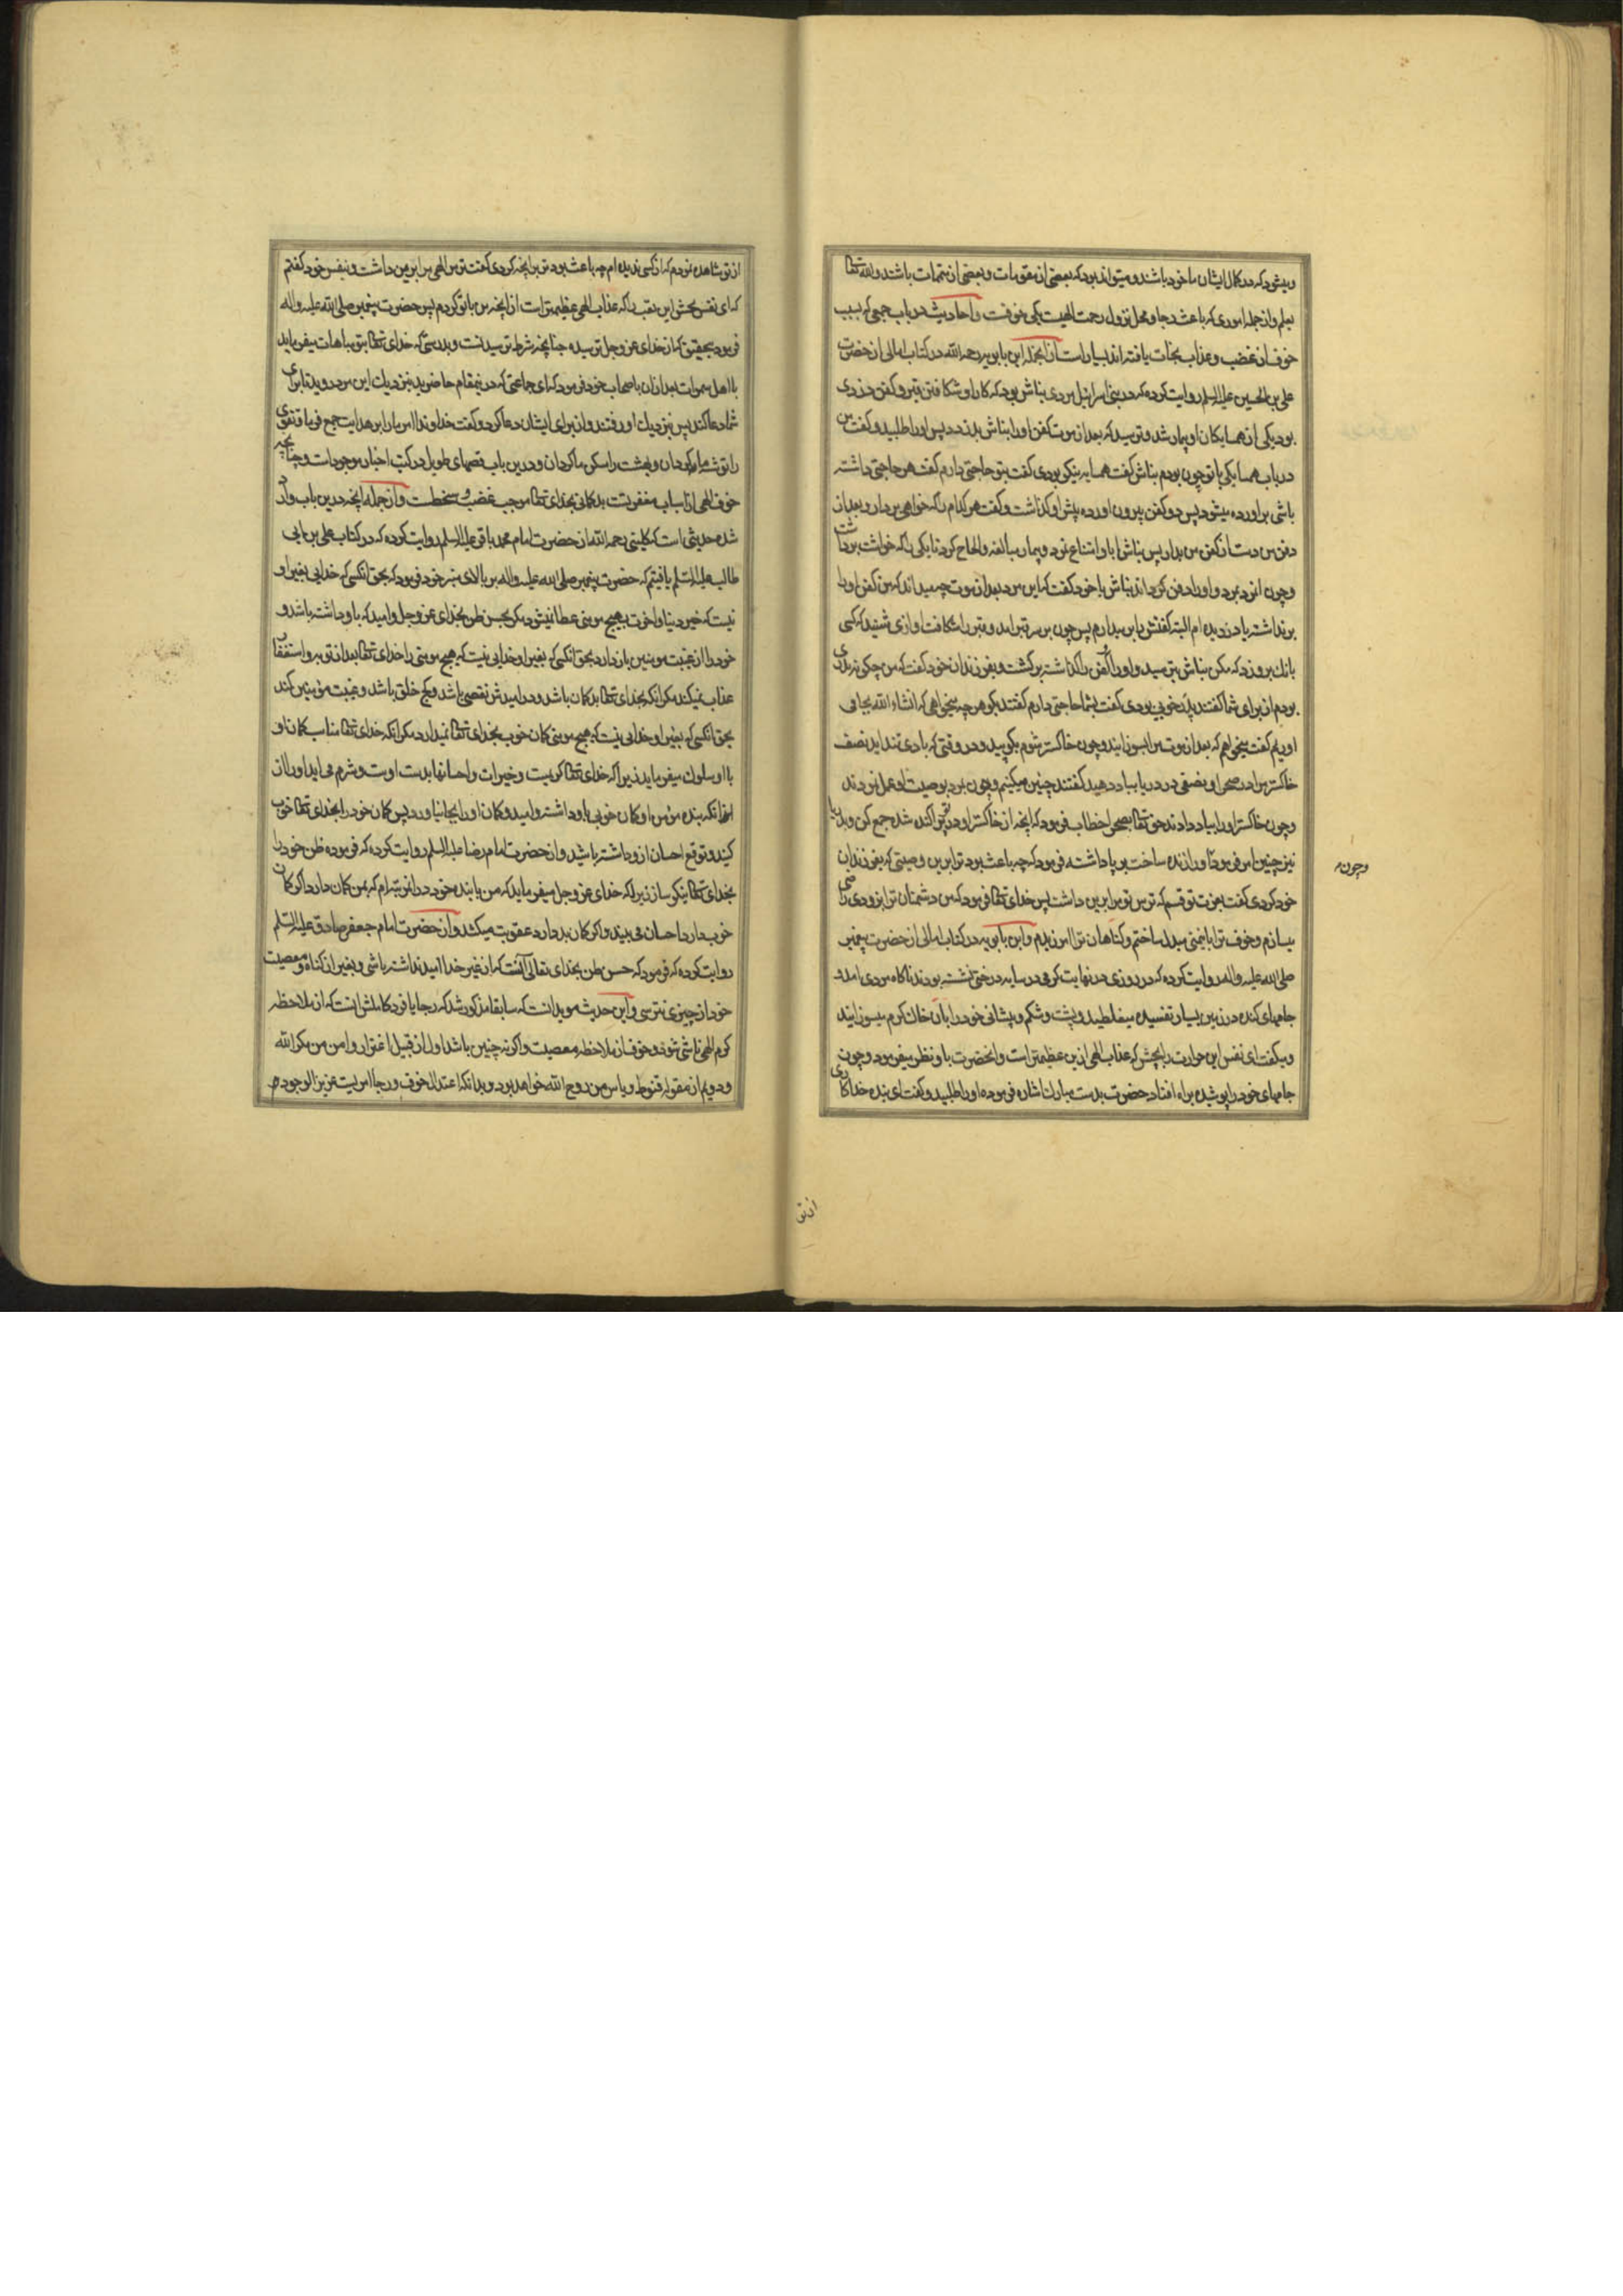 و میشود که در کمال ایشان ماخود باشند و میتواند بود که بعضی از مقومات و بعضی از متممات باشند والله تعالی
یعلم و از جمله اموری که باعث رجا و محل نزول رحمت الهیست یکی خوفست و احادیث در باب جمعی که بسبب
خوف از غضب و عذاب نجات یافته اند بسیار است از انجمله ابن بابویه رحمه الله در کتاب امالی از حضرت
علی بن الحسین علیه السلم روایت کرده که در بنی اسرائیل مردی نباش بود که کار او شکافتن قبر و کفن دزدی
بود یکی از همسایکان او بیمار شد و ترسید که بعد از موت کفن او را نباش بدزدد پس او را طلبید و کفت من
در باب همسایکی با تو چون بودم نباش کفت همسایه نیکی بودی کفت بتو حاجتی دارم کفت هر حاجتی داشته
باشی براورده میشود پس دو کفن بیرون اورده پیش او کذاشت و کفت هر کدام را که خواهی بردار و بعد از
دفن من دست از کفن من بدار پس نباش ابا و امتناع نمود و بیمار مبالغه و الحاح کرد تا یکی را که خواست برداشت
و چون انمرد بمرد و او را دفن کردند نباش با خود کفت که این مرد بعد از موت چه میداند که من کفن او را
برنداشته یا دزدیده ام البته کفنش را بر میدارم پس چون بر سر قبر امد و قبر را شکافت اوازی شنید که کسی
بانک برو زد که مکن نباش بترسید و او را و کفن را کذاشته برکشت و بفرزندان خود کفت که من چکونه پدری
بودم از برای شما کفتند پدر خوبی بودی کفت بشما حاجتی دارم کفتند بکو هر چه میخواهی که انشاء الله بجا می
اوریم کفت میخواهم که بعد از موت مرا بسوزانید و چون خاکستر شوم بکوبید و در وقتی که بادی تند اید نصف
خاکستر مرا در صحرا و نصفی در دریا بباد دهید کفتند چنین میکنیم و چون بمرد بوصیت او عمل نمودند
و چون خاکستر او را بباد دادند حق تعالی بصحرا خطاب فرمود که انچه از خاکستر او در تو پراکنده شده جمع کن و بدریا
نیز چنین امر فرمود تا او را زنده ساخت و برپا داشته فرمود که چه باعث بود ترا برین وصیتی که بفرزندان
خود کردی کفت بعزت تو قسم که ترس تو مرا برین داشت پس خدای تعالی فرمود که من دشمنان ترا بزودی راضی
میسازم و خوف ترا بایمنی مبدل ساختم و کناهان ترا امرزیدم و ابن بابویه در کتاب امالی از حضرت پیغمبر
صلی الله علیه واله روایت کرده که در روزی در نهایت کرمی در سایه درختی نشسته بودند ناکاه مردی امد و
جامهای کنده در زمین بسیار تفسیده میغلطید و پشت و شکم و پیشانی خود را بان خاک کرم میسوزانید
و میکفت ای نفس این حرارت را بچش که عذاب الهی ازین عظیمتر است و انحضرت باو نظر میفرمود و چون
جامهای خود را پوشیده براه افتاد حضرت بدست مبارک اشاره فرموده او را طلبید و کفت ای بنده خدا کاری
وچون
از تو
از تو مشاهده نمودم که از کسی ندیده ام چه باعث بود تو برانچه کردی کفت ترس الهی مرا برین داشت و بنفس خود کفتم
که ای نفس بچش این تعب را که عذاب الهی عظیمتر است از انچه من با تو کردم پس حضرت پیغمبر صلی الله علیه واله
فرمود بتحقیق که از خدای عزوجل ترسیده چنانچه شرط ترسیدنست و بدرستی که خدای تعالی بتو مباهات میفرماید
با اهل سموات بعد ازان باصحاب خود فرمود که ای جماعتی که درینمقام حاضرید بنزدیک این مرد روید تا برای
شما دعا کند پس بنزدیک او رفتند و او از برای ایشان دعا کرد و کفت خداوندا امر ما را بر هدایت جمع فرما و تقوی
را توشه ما کردان و بهشت را مسکن ما کردان و درین باب قصهای طویل در کتب اخبار موجود است و چنانچه
خوف الهی از اسباب مغفرتست بدکمانی بخدای تعالی موجب غضب و سخطست و از جمله انچه درین باب وارد
شده حدیثی است که کلینی رحمه الله از حضرت امام محمد باقر علیه السلم روایت کرده که در کتاب علی بن ابی
طالب علیه السلم یافتیم که حضرت پیغمبر صلی الله علیه واله بر بالای منبر خود فرمود که بحق انکسی که خدایی بغیر او
نیست که خیر دنیا و اخرت بهیچ مومنی عطا نمیشود مکر بحسن ظن بخدای عزوجل و امید که باو داشته باشد و
خود را از غیبت مومنین باز دارد بحق انکسی که بغیر او خدایی نیست که هیچ مومنی را خدای تعالی بعد از توبه و استغفار
عذاب نمیکند مکر انکه بخدای تعالی بدکمان باشد و در امیدش نقصی باشد و کج خلق باشد و غیبت مؤمنین کند
بحق انکسی که بغیر او خدایی نیست که هیچ مومنی کمان خوب بخدای تعالی نمیدارد مکر انکه خدای تعالی مناسب کمان او
با او سلوک میفرماید زیرا که خدای تعالی کریمست و خیرات و احسانها بدست اوست و شرم می اید او را از
انکه بنده مؤمن او کمان خوبی باو داشته و امید و کمان او را بجا نیاورد پس کمان خود را بخدای تعالی خوب
کنید و توقع احسان ازو داشته باشید و از حضرت امام رضا علیه السلم روایت کرده که فرموده ظن خود را
بخدای تعالی نیکو ساز زیرا که خدای عزوجل میفرماید که من با بنده خود در انمرتبه ام که بمن کمان دارد اکر کمان
خوب دارد احسان می بیند و اکر کمان بد دارد عقوبت میکشد و از حضرت امام جعفر صادق علیه السلم
روایت کرده که فرمود که حسن ظن بخدای تعالی آنست که از غیر خدا امید نداشته باشی و بغیر از کناه و معصیت
خود از چیزی نترسی و این حدیث موید انست که سابقا مذکور شد که رجا یا فرد کاملش انست که از ملاحظه
کرم الهی ناشی شود و خوف از ملاحظه معصیت و اکر نه چنین باشد اول از قبیل اغترار و امن من مکر الله
و دویم از مقوله قنوط و یاس من روح الله خواهد بود و بدانکه اعتدال خوف و رجا امریست عزیز الوجود